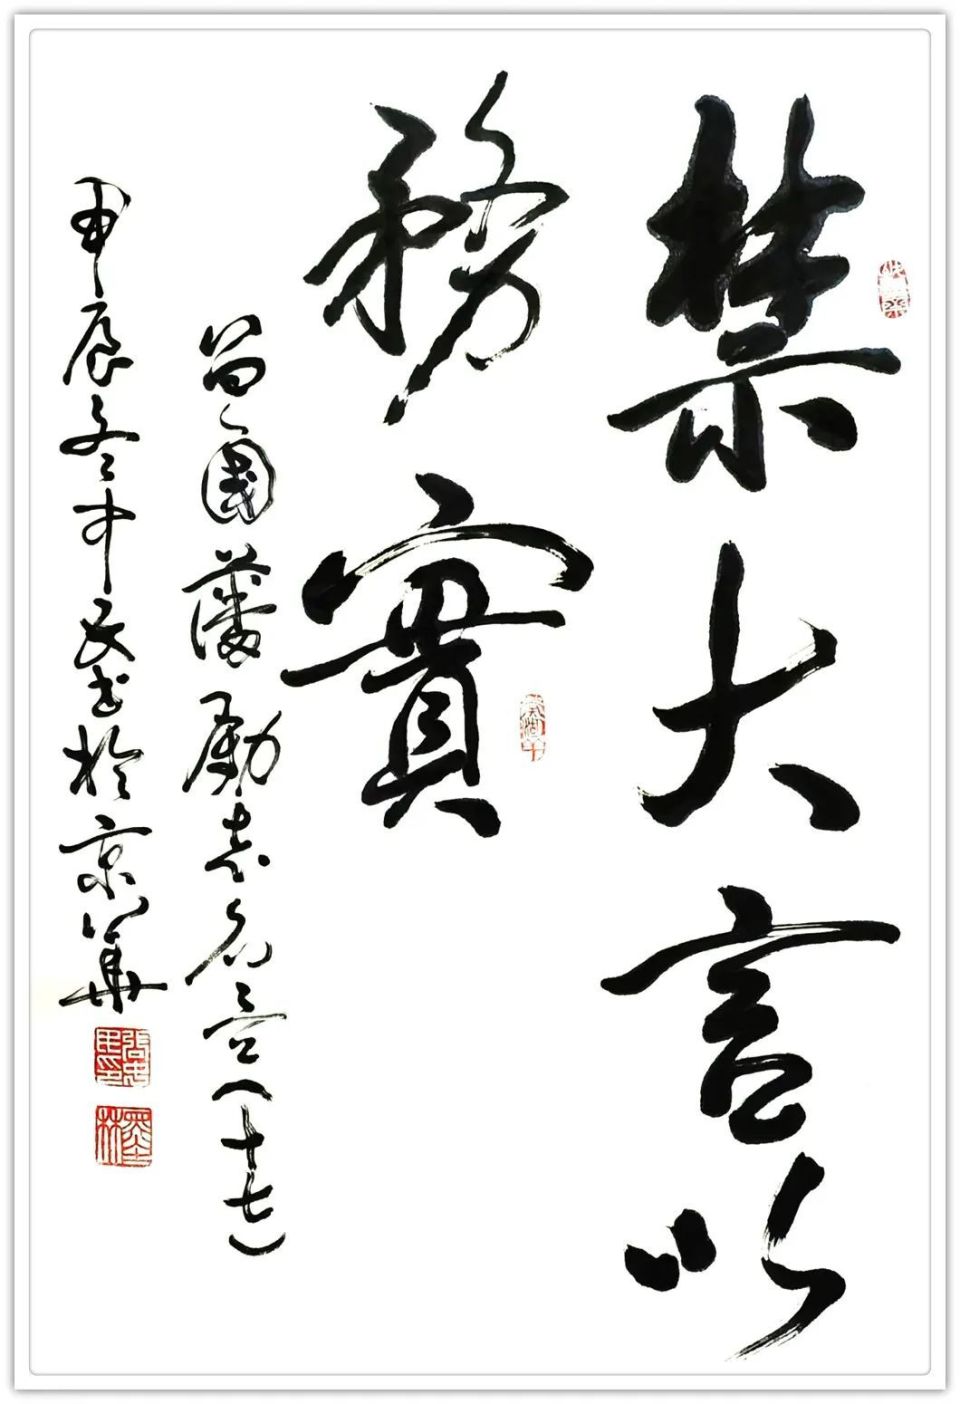 禁大言以
務實
曾國藩勵志名言(十七)
甲辰冬中民书於京華